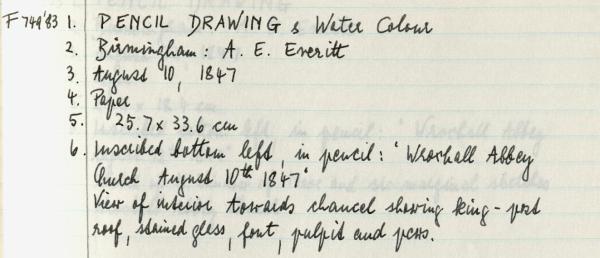 F749'83 1. PENCIL DRAWING & Water Colour
2. Birmingham: A. E. Everitt
3. August 10, 1847
4. Paper
5. 25.7 x 33.6 cm
6. Inscribed bottom left, in pencil: "Wroxhall Abbey
Church August 10th 1847"
View of interior towards chancel showing king-post
roof, stained glass, font, pulpit and pews.